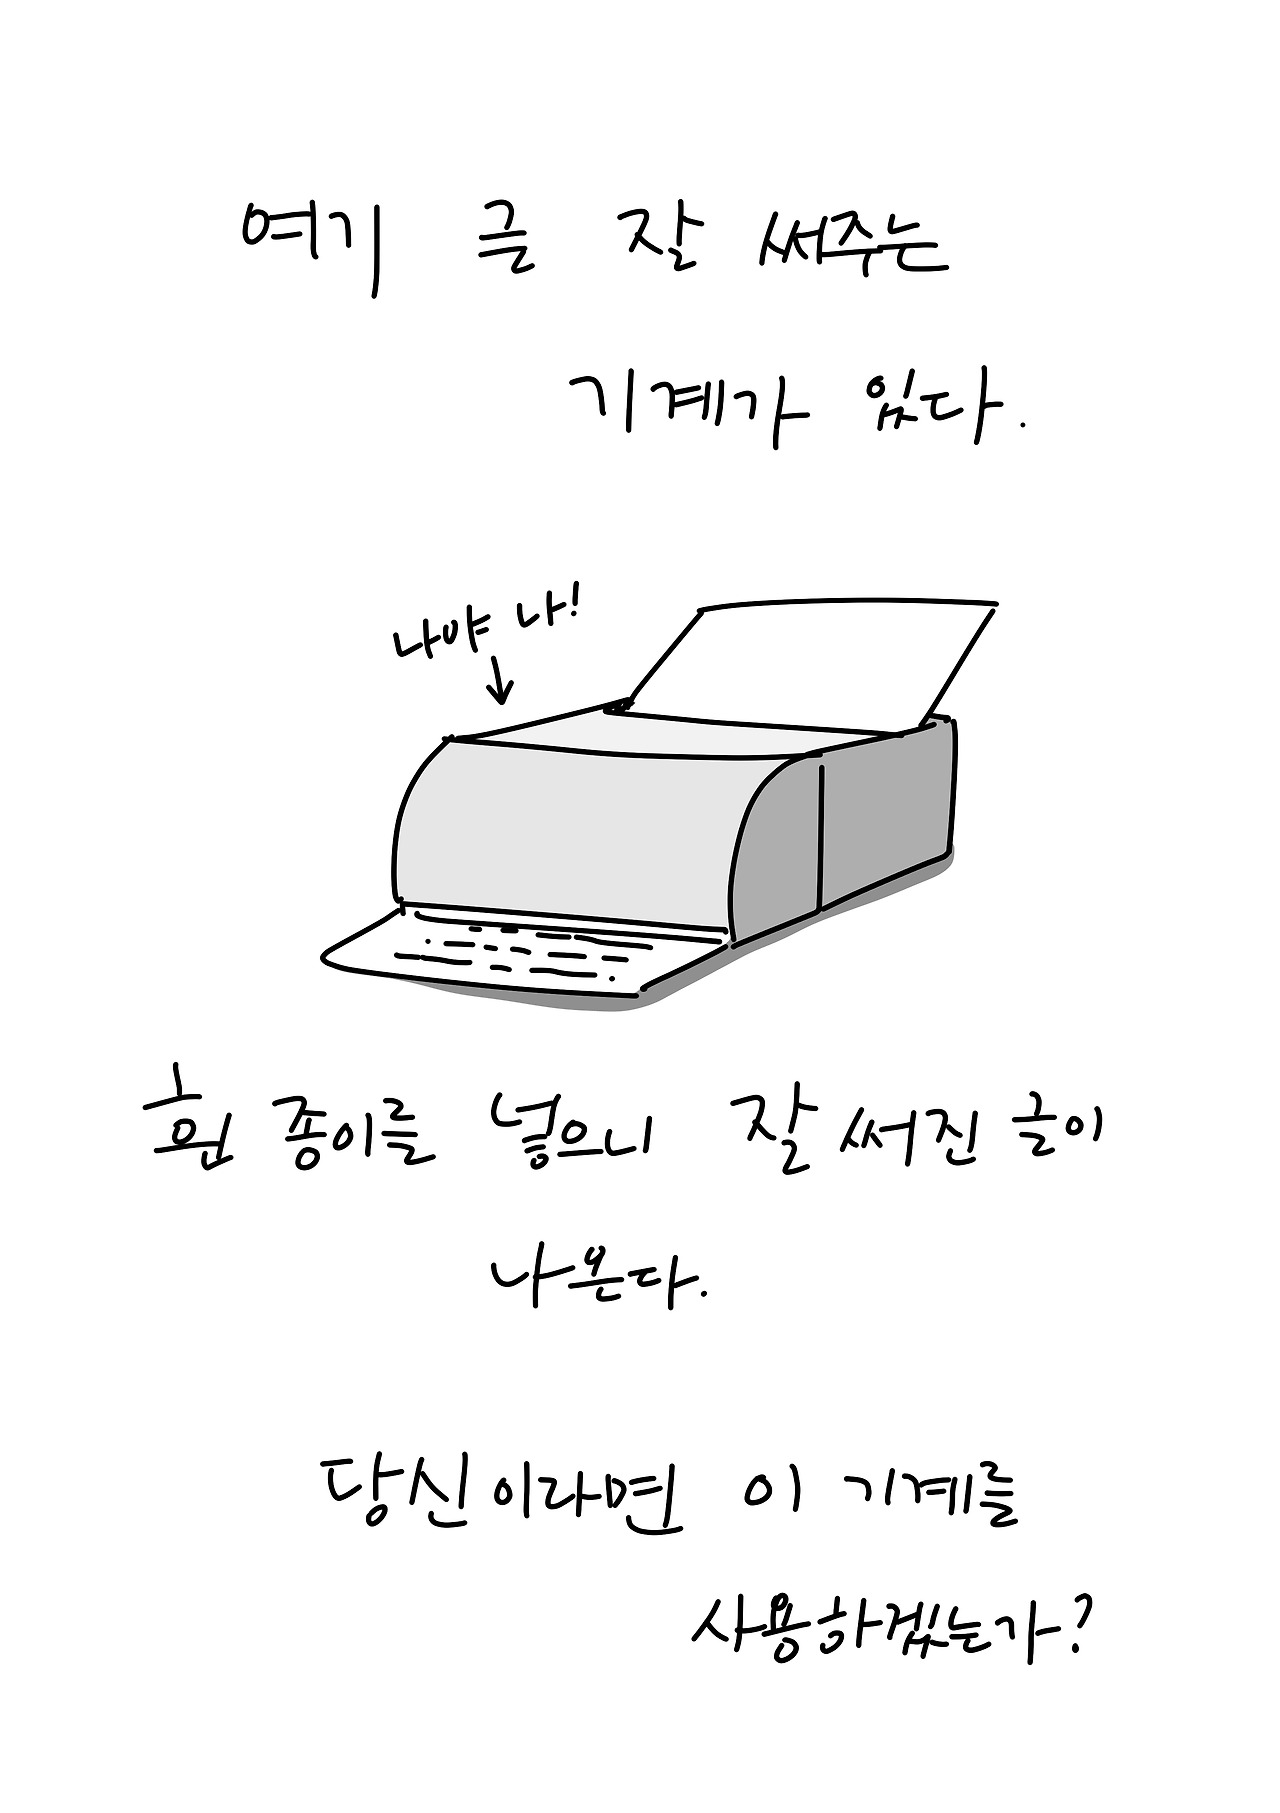 여기 글 잘 써주는
기계가 있다.
나야 나!
흰 종이를 넣으니 잘 써진 글이
나온다.
당신이라면 이 기계를
사용하겠는가?